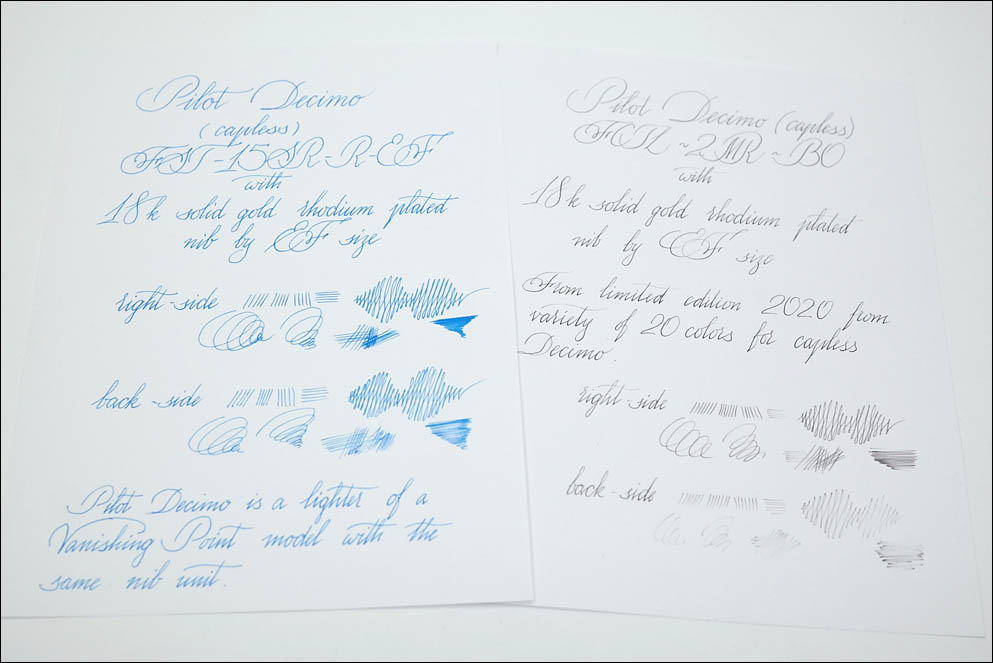 Pilot Decimo
(capless)
FST-15SR-R-EF
with
18k solid gold rhodium plated
nib by EF size
right-side
back-side
Pilot Decimo is a lighter of a
Vanishing Point model with the
same nib unit.
Pilot Decimo (capless)
~2MR~BO
with
18k solid gold rhodium plated
nib by EF size
From limited edition 2020 from
variety of 20 colors for capless
Decimo.
right-side
back-side